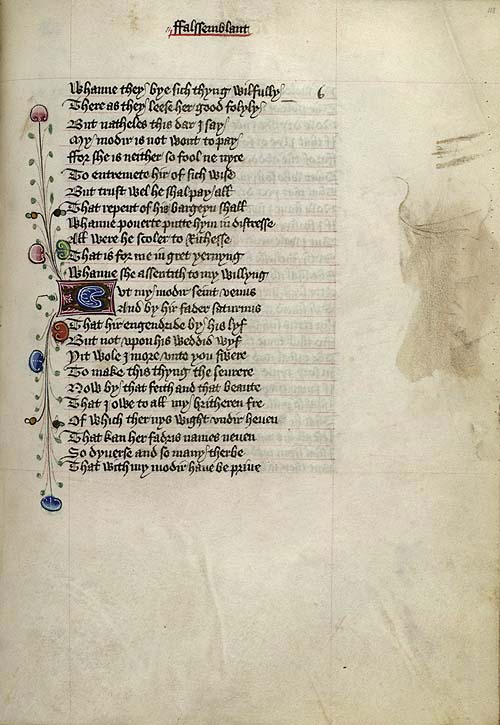 ffalssemblant
Whanne they bye sich thyng wilfully 6
There as they leese her good folyly
But natheles this dar I say
My modir is not wont to pay
ffor she is neither so fool ne nyce
To entremete hir of sich wise
But trust wel he shal pay all
That repent of his bargeyn shall
Whanne pouerte putte hym in distresse
All were he scoler to Richesse
That is for me in gret yernyng
Whanne she assentith to my willyng
But my modir seint venus
And by hir fader saturnus
That hir engendride by his lyf
But not vpon his weddid wyf
Yit wole I more vnto you swere
To make this thyng the seurere
Now by that feith and that beaute
That I owe to all my britheren fre
Of which ther nys wight vndir heuen
That kan her fadris names neuen
So dyuerse and so many ther be
That with my modir haue be priue